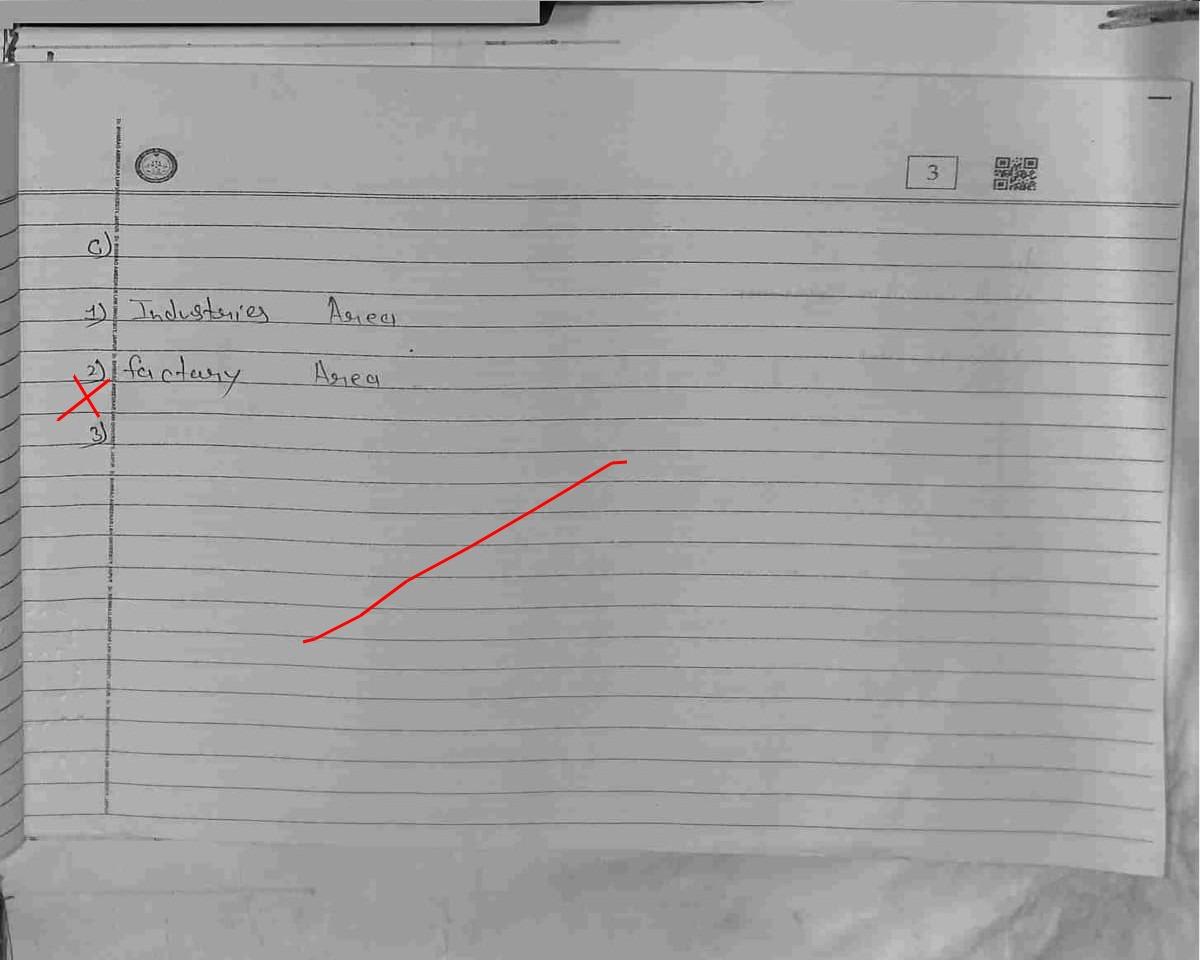 3
C)
1) Industries Area
2) factary Area
3)